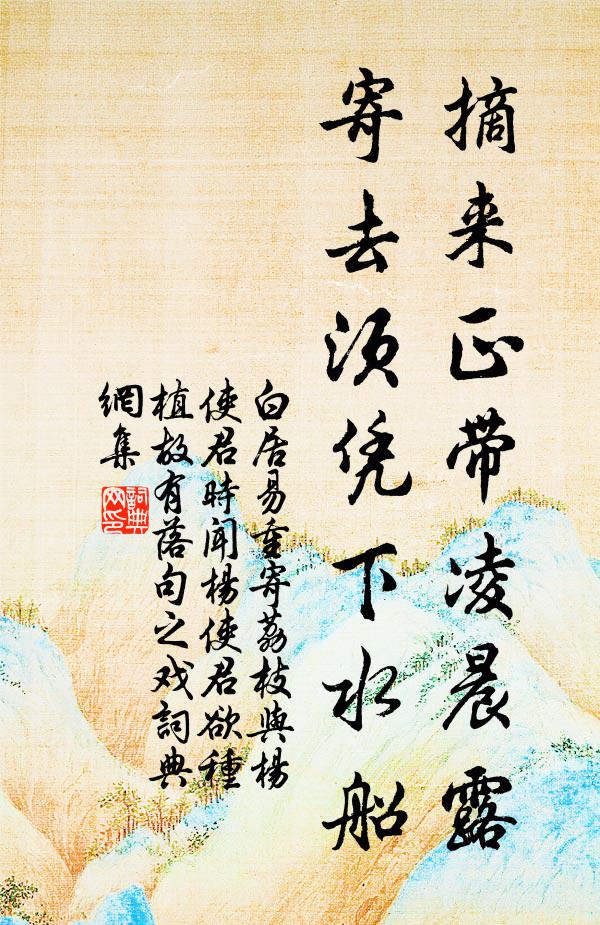 摘来正带凌晨露
寄去须凭下水船
白居易重寄荔枝與楊
使君時聞楊使君欲種
植故有落句之戏詞典
網集
詞典
网印